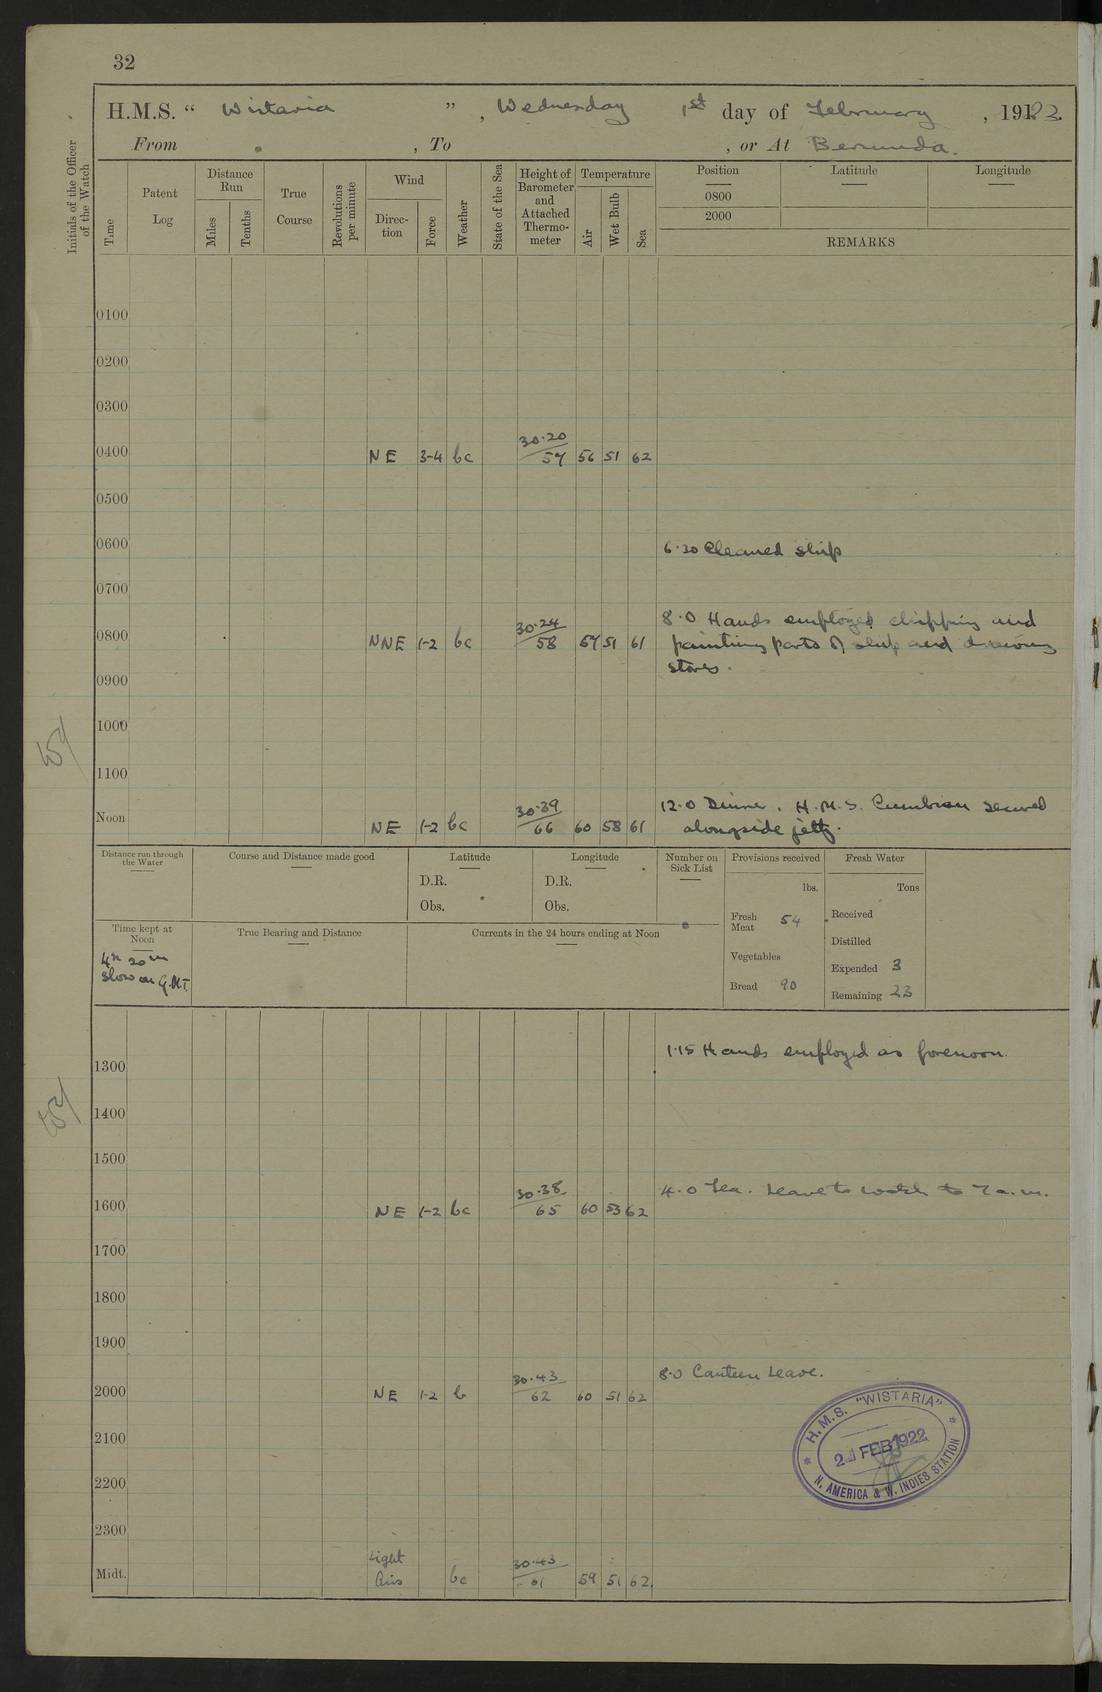 32
H.M.S. " Wistaria ", Wednesday 1st day of February, 1922.
From , To , or At Bermuda.
Initials of the Officer of the Watch
Time
Patent Log
Distance Run
Miles
Tenths
True Course
Revolutions per minute
Wind
Direction
Force
Weather
State of the Sea
Height of Barometer and Attached Thermometer
Temperature
Air
Wet Bulb
Sea
Position
0800
2000
Latitude
Longitude
REMARKS
0100
0200
0300
0400 NE 3-4 bc 30.20 57 56 51 62
0500
0600 6.20 Cleaned ship
0700
0800 NNE 1-2 bc 30.24 58 57 51 61
8.0 Hands employed chipping and
painting parts of ship and drawing
stores.
0900
1000
1100
Noon NE 1-2 bc 30.39 66 60 58 61
12.0 Dinner. H.M.S. Cambrian secured
alongside jetty.
Distance run through the Water
Course and Distance made good
Latitude
D.R.
Obs.
Longitude
D.R.
Obs.
Number on Sick List
Provisions received
lbs.
Fresh Meat 54
Vegetables
Bread 90
Fresh Water
Tons
Received
Distilled
Expended 3
Remaining 23
Time kept at Noon
4h 20m
slow on G.M.T.
True Bearing and Distance
Currents in the 24 hours ending at Noon
1.15 Hands employed as forenoon.
1300
1400
1500
1600 NE 1-2 bc 30.38 65 60 53 62
4.0 Tea. Leave to watch to 7 a.m.
1700
1800
1900
8.0 Canteen Leave.
2000 NE 1-2 b 30.43 62 60 51 62
2100
2200
2300
Midt. Light Airs bc 30.43 61 59 51 62
H.M.S. "WISTARIA"
2 FEB 1922
N. AMERICA & W. INDIES STATION